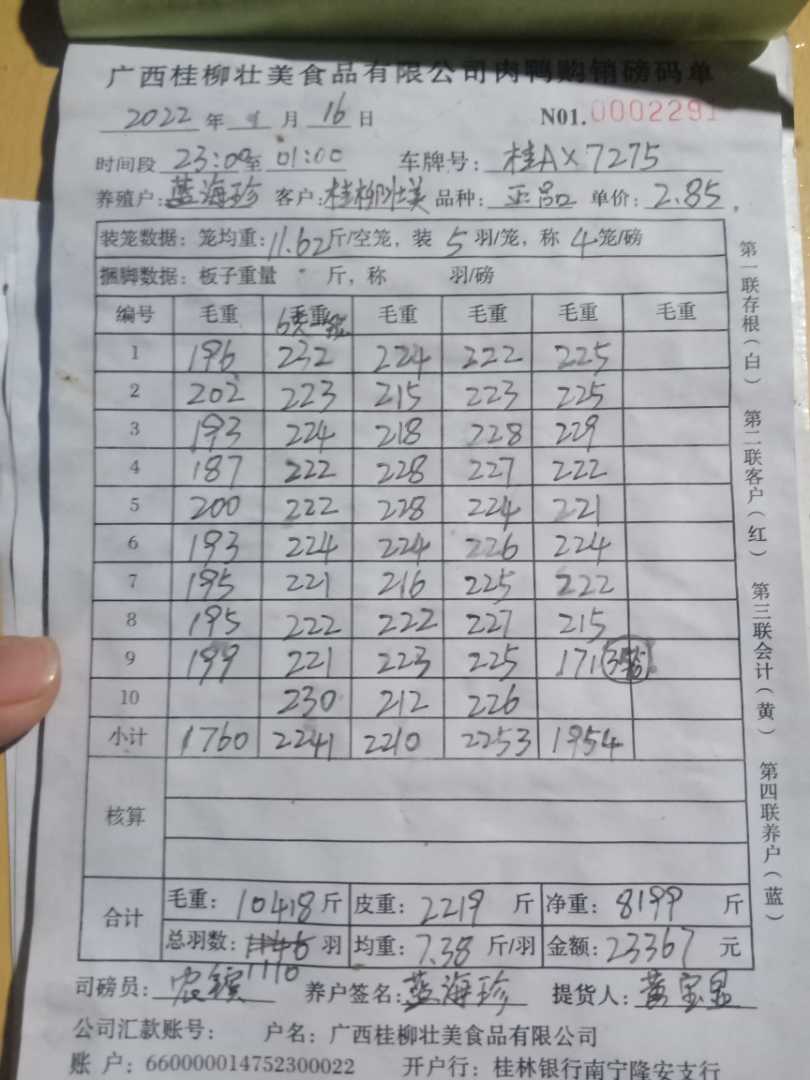 广西桂柳壮美食品有限公司肉鸭购销磅码单
2022 年 月 16 日 N01. 0002291
时间段 23:00 至 01:00 车牌号: 桂AX7275
养殖户: 蓝海珍 客户: 桂柳壮美 品种: 正品 单价: 2.85
装笼数据: 笼均重: 11.62 斤/空笼, 装 5 羽/笼, 称 4 笼/磅
捆脚数据: 板子重量 斤, 称 羽/磅
编号 毛重 毛重 毛重 毛重 毛重 毛重
1 196 232 224 222 225
2 202 223 215 223 225
3 193 224 218 228 229
4 187 222 228 227 222
5 200 222 228 224 221
6 193 224 224 226 224
7 195 221 216 225 222
8 195 222 222 227 215
9 199 221 223 225 171
10 230 212 226
小计 1760 2241 2210 2253 1954
核算
合计 毛重: 10418 斤 皮重: 2219 斤 净重: 8199 斤
总羽数: 1110 羽 均重: 7.38 斤/羽 金额: 23367 元
司磅员: 养户签名: 蓝海珍 提货人:
公司汇款账号: 户名: 广西桂柳壮美食品有限公司
账 户: 660000014752300022 开户行: 桂林银行南宁隆安支行
第一联存根(白) 第二联客户(红) 第三联会计(黄) 第四联养户(蓝)